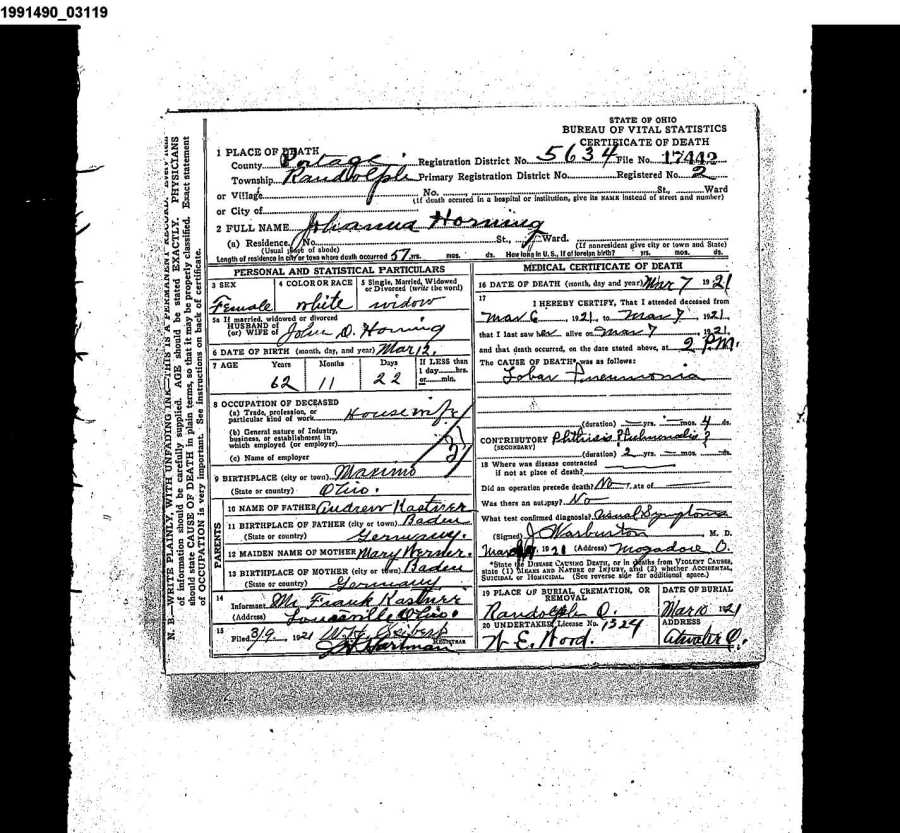 1991490_03119
STATE OF OHIO
BUREAU OF VITAL STATISTICS
CERTIFICATE OF DEATH
1 PLACE OF DEATH
County Portage Registration District No. 5634 File No. 17442
Township Randolph Primary Registration District No. Registered No. 2
or Village No. St., Ward
(If death occured in a hospital or institution, give its NAME instead of street and number)
or City of
2 FULL NAME Johanna Horning
(a) Residence. No. St., Ward.
(Usual place of abode) (If nonresident give city or town and State)
Length of residence in city or town where death occurred 57 yrs. mos. ds. How long in U. S., if of foreign birth? yrs. mos. ds.
PERSONAL AND STATISTICAL PARTICULARS
3 SEX 4 COLOR OR RACE 5 Single, Married, Widowed or Divorced (write the word)
Female white widow
5a If married, widowed or divorced
HUSBAND of
(or) WIFE of John D. Horning
6 DATE OF BIRTH (month, day, and year) Mar 12,
7 AGE Years Months Days If LESS than
1 day......hrs.
or......min.
62 11 22
8 OCCUPATION OF DECEASED
(a) Trade, profession, or
particular kind of work
(b) General nature of Industry,
business, or establishment in
which employed (or employer)
(c) Name of employer
9 BIRTHPLACE (city or town) Maximo
(State or country) Ohio.
PARENTS
10 NAME OF FATHER Andrew Kastner
11 BIRTHPLACE OF FATHER (city or town) Baden
(State or country) Germany.
12 MAIDEN NAME OF MOTHER Mary Werner.
13 BIRTHPLACE OF MOTHER (city or town) Baden
(State or country) Germany
14
Informant Mr Frank Kastner
(Address) Louisville Ohio.
15
Filed 3/9 1921
Hartman REGISTRAR
MEDICAL CERTIFICATE OF DEATH
16 DATE OF DEATH (month, day and year) Mar 7 1921
17 I HEREBY CERTIFY, That I attended deceased from
Mar 6, 1921, to Mar 7, 1921,
that I last saw her alive on Mar 7, 1921,
and that death occurred, on the date stated above, at 2 P.M.
The CAUSE OF DEATH* was as follows:
Lobar Pneumonia
(duration) yrs. mos. 4 ds.
CONTRIBUTORY Phthisis Pulmonalis?
(SECONDARY)
(duration) 2 yrs. mos. ds.
18 Where was disease contracted
if not at place of death?
Did an operation precede death? No Date of
Was there an autopsy? No
What test confirmed diagnosis? Usual Symptoms
(Signed) J Warburton, M. D.
1921 (Address) Mogadore O.
*State the DISEASE CAUSING DEATH, or in deaths from VIOLENT CAUSES,
state (1) MEANS AND NATURE OF INJURY, and (2) whether ACCIDENTAL,
SUICIDAL or HOMICIDAL. (See reverse side for additional space.)
19 PLACE OF BURIAL, CREMATION, OR REMOVAL DATE OF BURIAL
Randolph O. Mar 10 1921
20 UNDERTAKER, License No. 1324 ADDRESS
W. E. Wood. Atwater O.
N. B.—WRITE PLAINLY, WITH UNFADING INK—THIS IS A PERMANENT RECORD. Every item
of information should be carefully supplied. AGE should be stated EXACTLY. PHYSICIANS
should state CAUSE OF DEATH in plain terms, so that it may be properly classified. Exact statement
of OCCUPATION is very important. See instructions on back of certificate.